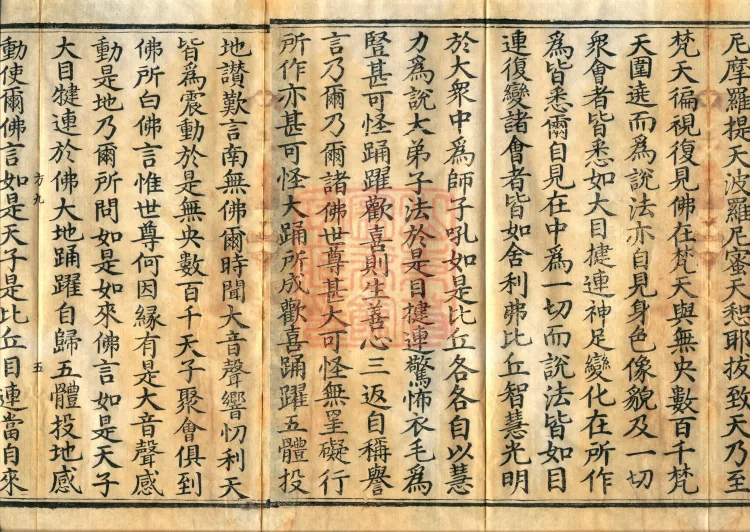 尼摩羅提天波羅尼蜜天恕耶拔致天乃至
梵天徧視復見佛在梵天與無央數百千梵
天圍遶而為說法亦自見身色像貌及一切
衆會者皆悉如大目揵連神足變化在所作
為皆悉爾自見在中為一切而說法皆如目
連復變諸會者皆如舍利弗比丘智慧光明
於大衆中為師子吼如是比丘各各自以慧
力為說大弟子法於是目揵連驚怖衣毛為
豎甚可怪踊躍歡喜則生善心三返自稱譽
言乃爾乃爾諸佛世尊甚大可怪無罣礙行
所作亦甚可怪大踊所成歡喜踊躍五體投
地讃歎言南無佛爾時聞大音聲響忉利天
皆為震動於是無央數百千天子聚會俱到
佛所白佛言惟世尊何因緣有是大音聲感
動是地乃爾所問如是如來佛言如是天子
大目犍連於佛大地踊躍自歸五體投地感
方九
五
動使爾佛言如是天子是比丘目連當自來